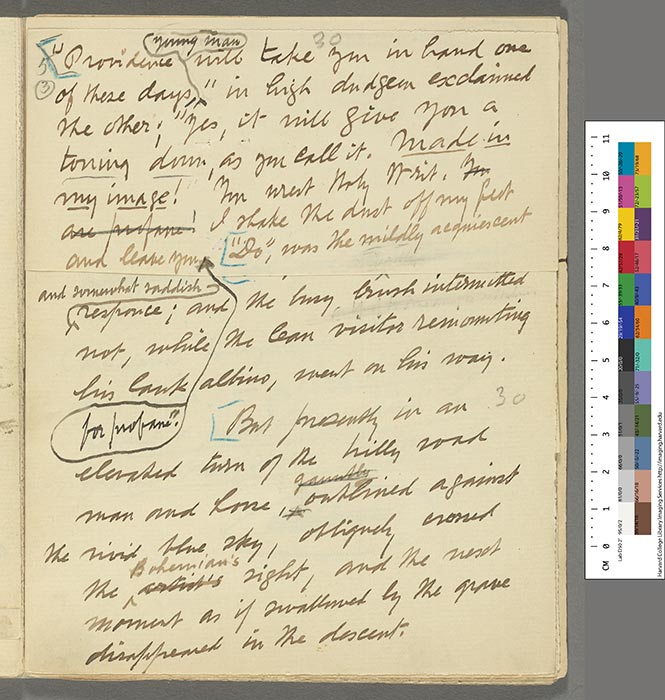 30
young man
"Providence will take you in hand one
5
3
of these days," in high dudgeon exclaimed
the other; "Yes, it will give you a
toning down, as you call it. Made in
my image! You wrest Holy Writ. You
are profane! I shake the dust off my feet
and leave you
"Do", was the mildly acquiescent
and somewhat saddish
response; and the busy brush intermitted
not, while the lean visitor remounting
his lank albino, went on his way.
for profane."
30
But presently in an
elevated turn of the hilly road
gauntly
man and horse, outlined against
the vivid blue sky, obliquely crossed
Bohemian's
the artist's sight, and the next
moment as if swallowed by the grave
disappeared in the descent.
CM 0 1 2 3 4 5 6 7 8 9 10 11
Harvard College Library Imaging Services http://imaging.harvard.edu